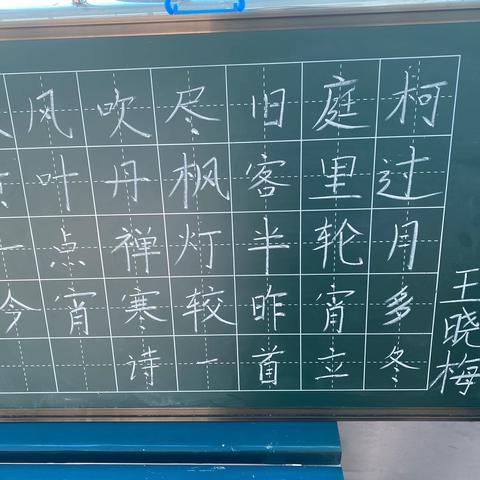 风吹尽旧庭柯
叶丹枫客里过
一点禅灯半轮月
今宵寒较昨宵多
诗一首立冬
王晓梅